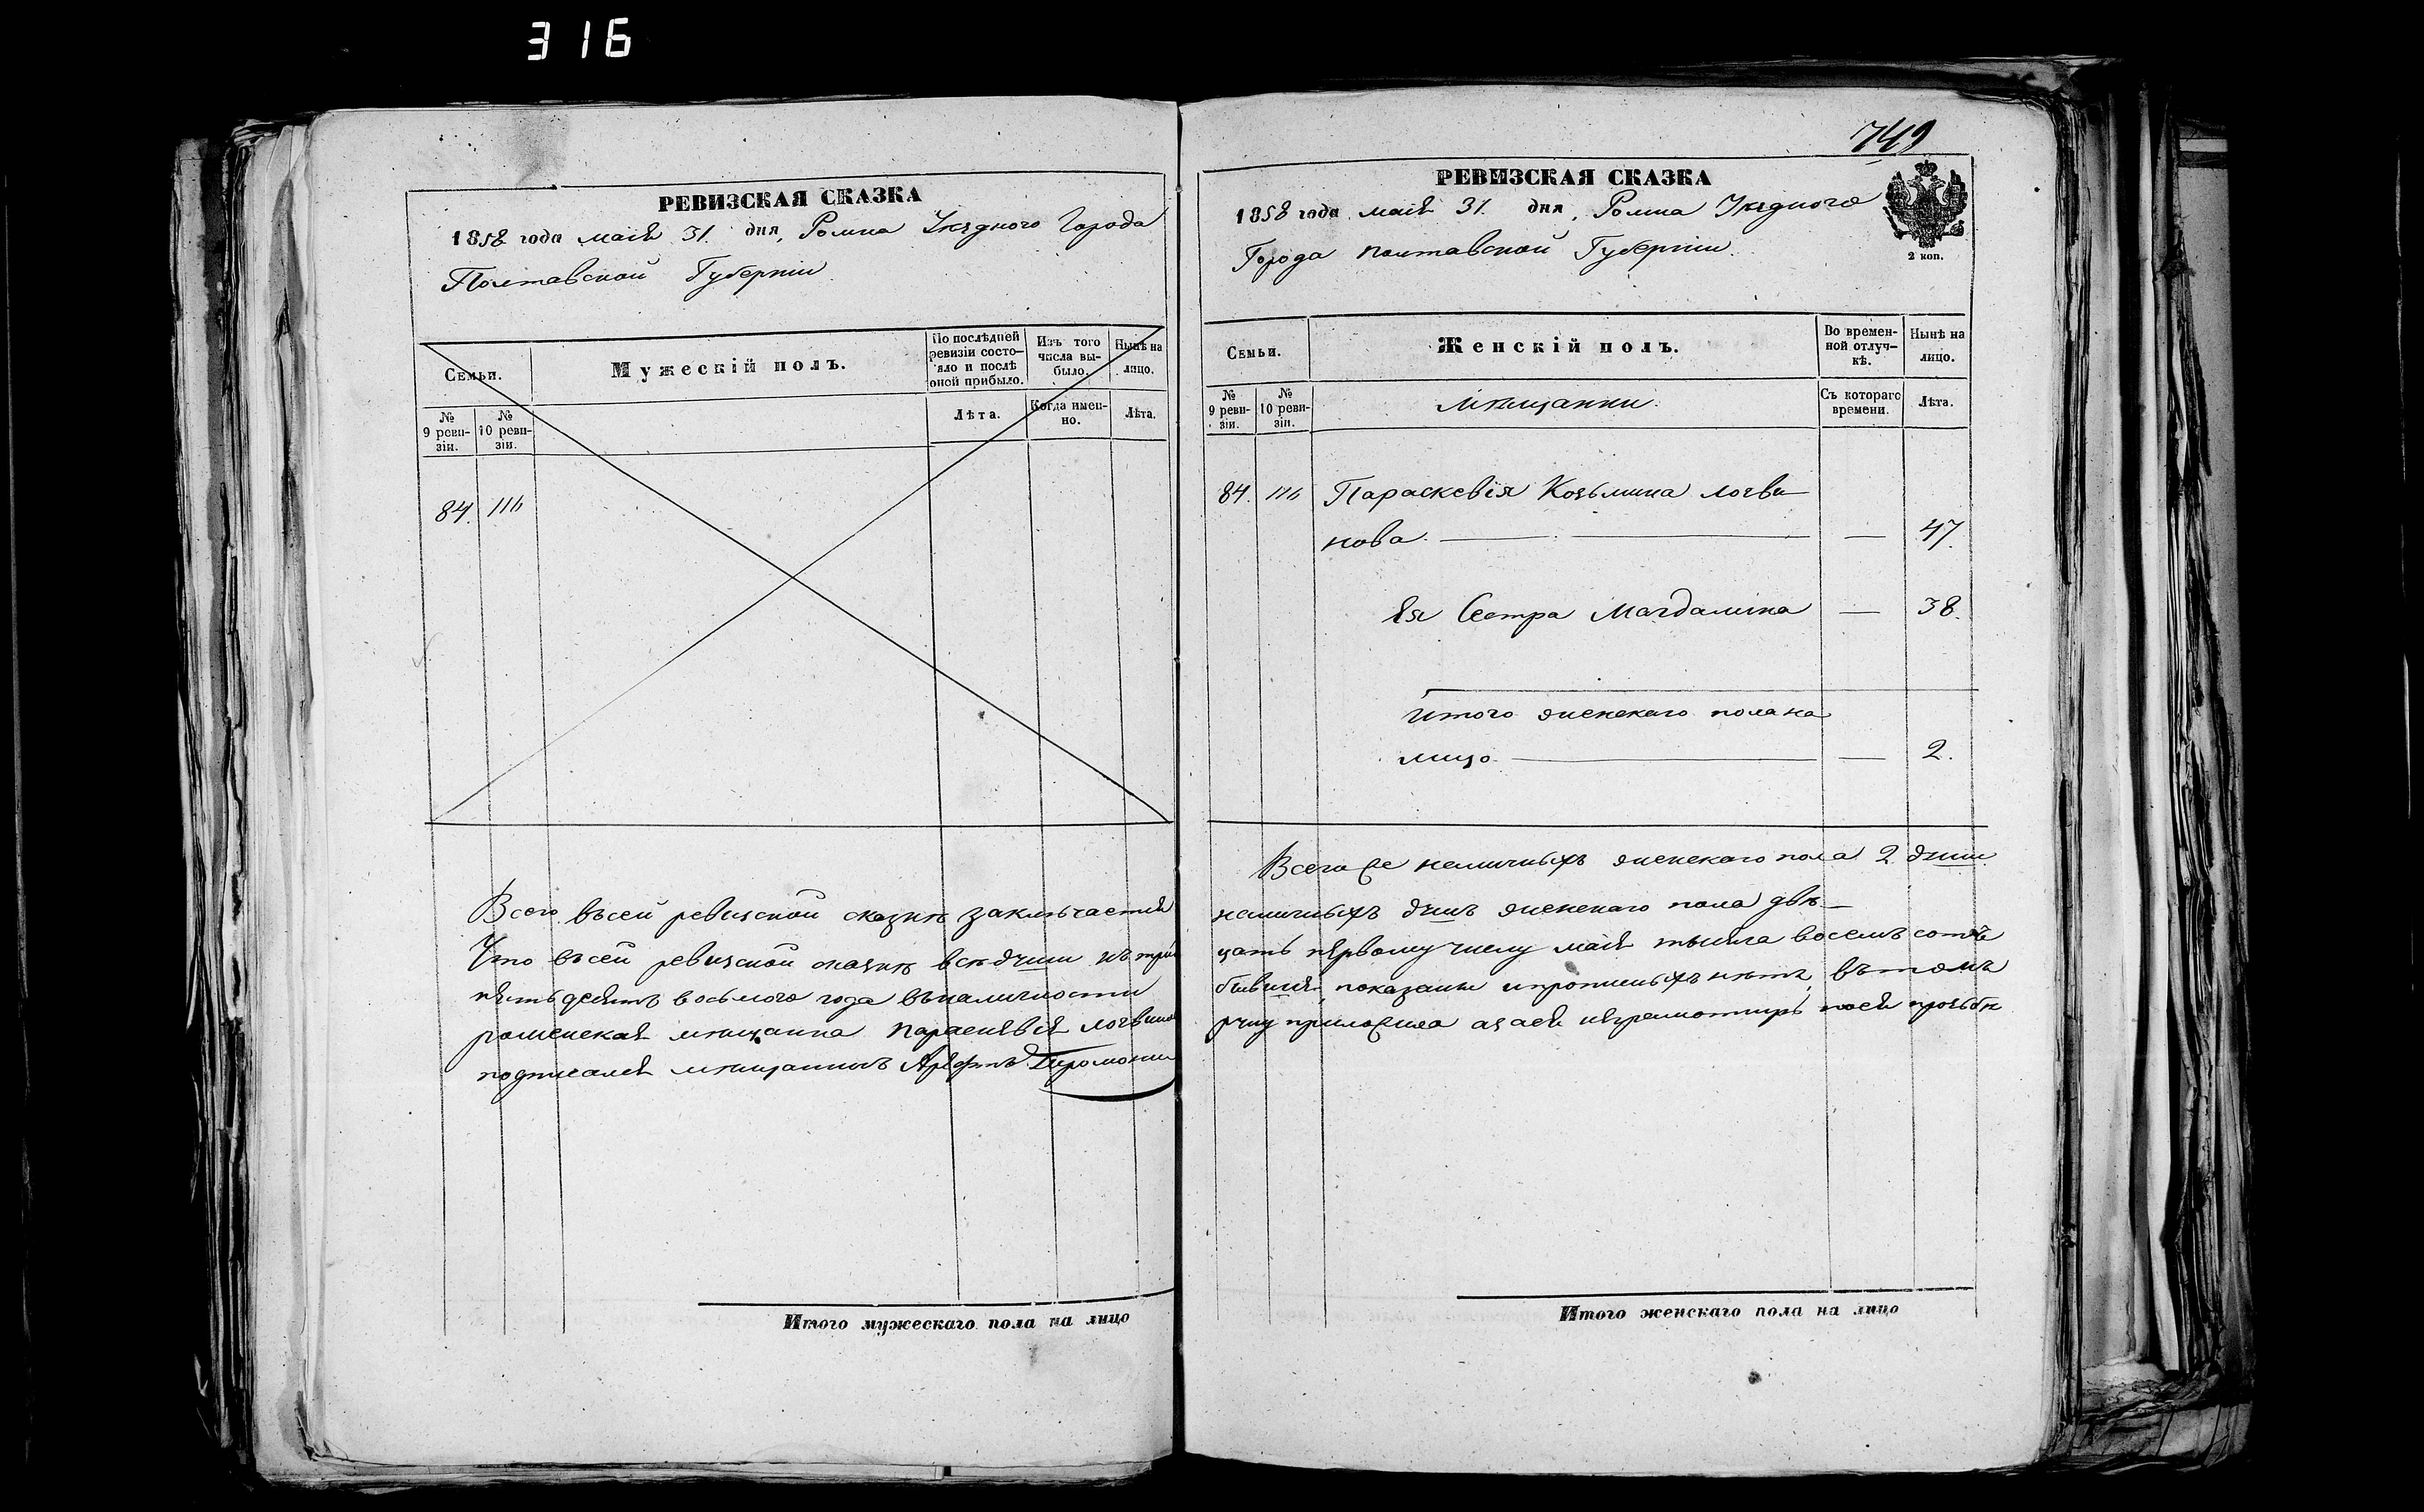 316
РЕВИЗСКАЯ СКАЗКА
1858 года мая 31. дня, Ромна Уѣзднаго Города
Полтавской Губерніи
Семьи.
Мужескій полъ.
По послѣдней ревизіи состояло и послѣ оной прибыло.
Изъ того числа выбыло.
Нынѣ на лицо.
№ 9 ревизіи.
№ 10 ревизіи.
Лѣта.
Когда именно.
Лѣта.
84. 116
Всего въ сей ревизской сказкѣ заключается
Что въ сей ревизской сказкѣ всѣ души къ три
пятьдесятъ восьмого года въ наличности
роменская мѣщанка Параскевія Логвино
подписался мѣщанинъ
Итого мужескаго пола на лицо
749
РЕВИЗСКАЯ СКАЗКА
1858 года мая 31. дня, Ромна Уѣзднаго
Города Полтавской Губерніи.
2 коп.
Семьи.
Женскій полъ.
Во временной отлучкѣ.
Нынѣ на лицо.
№ 9 ревизіи.
№ 10 ревизіи.
Мѣщанки.
Съ котораго времени.
Лѣта.
84. 116 Параскевія Козьмина Логви
нова — 47.
Ея Сестра Магдалина — 38.
Итого женскаго пола на
лицо — 2.
Всего наличныхъ женскаго пола 2 души
наличныхъ душъ женскаго пола двѣ
цать первому числу мая тысяча восемъ сотъ
бывшія, показаны и прописныхъ нѣтъ, въ томъ
руку приложила а за ея неграмотную по ея прозьбѣ
Итого женскаго пола на лицо